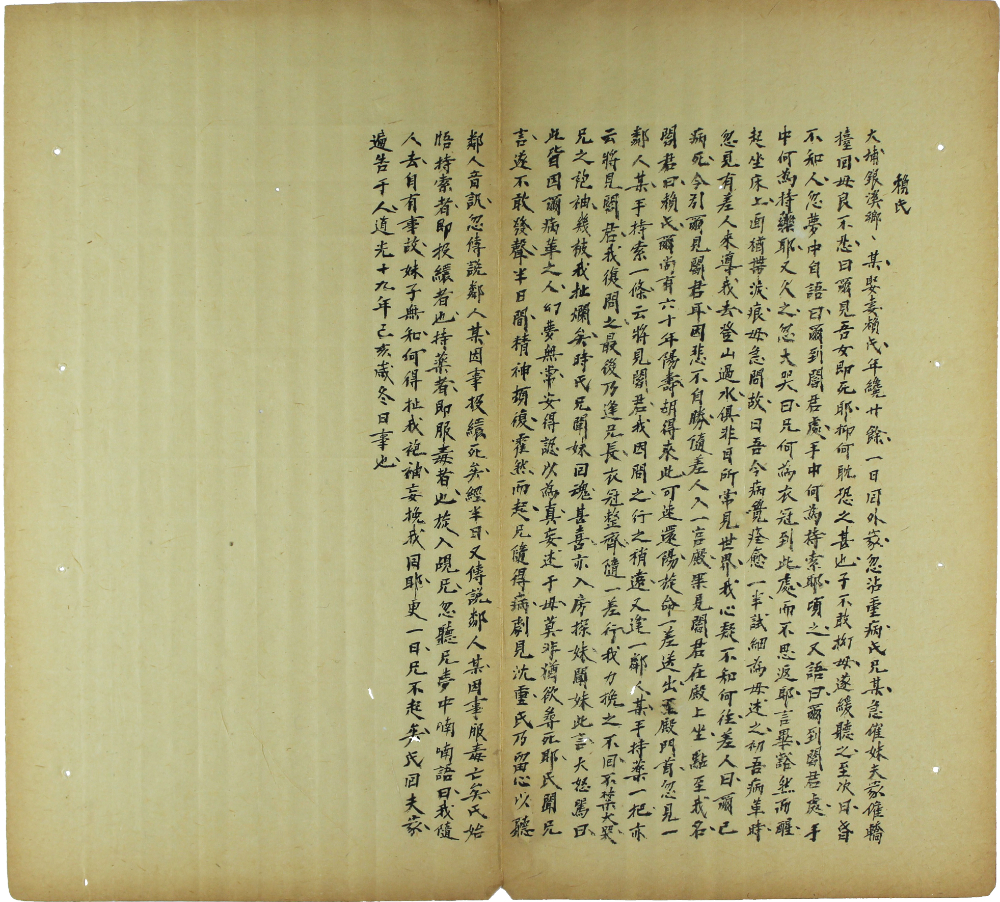 賴氏
大埔銀溪鄉、某娶妻賴氏年纔廿餘一日回外家忽沾重病氏兄某急催妹夫家催轎
擡回母良不悲曰爾見吾女即死耶抑何耽恐之甚也子不敢拗母遂緩聽之至次日昏
不知人忽夢中自語曰爾到閻君處手中何為持索耶頃之又語曰爾到閻君處手
中何為持藥耶又久之忽大哭曰兄何為衣冠到此處而不思返耶言畢豁然而醒
起坐床上面猶帶淚痕母急問故曰吾今病覺痊愈一半試細為母述之初吾病革時
忽見有差人來導我去登山過水俱非目所常見世界我心疑不知何往差人曰爾已
病死今引爾見閻君耳因悲不自勝隨差人入一宮殿果見閻君在殿上坐點至我名
閻君曰賴氏爾尚有六十年陽壽胡得來此可速還陽旋命一差送出至殿門首忽見一
鄰人某手持索一條云將見閻君我因問之行之稍遠又逢一鄰人某手持藥一把亦
云將見閻君我復問之最後乃逢兄長衣冠整齊隨一差行我力挽之不回不禁大哭
兄之袍袖幾被我扯爛矣時氏兄聞妹回魂甚喜亦入房探妹聞妹此言大怒罵曰
此皆因爾病革之人幻夢無常安得認以為真妄述于母莫非猶欲尋死耶氏聞兄
言遂不敢發聲半日間精神頓復霍然而起兄隨得病劇見沈重氏乃留心以聽
鄰人音訊忽傳說鄰人某因事投繯死矣經半日又傳說鄰人某因事服毒亡矣氏始
悟持索者即投繯者也持藥者即服毒者也旋入覘兄忽聽兄夢中喃喃語曰我隨
人去自有事故妹子無知何得扯我袍袖妄挽我回耶更一日兄不起矣氏回夫家
遍告于人道光十九年己亥歲冬日事也